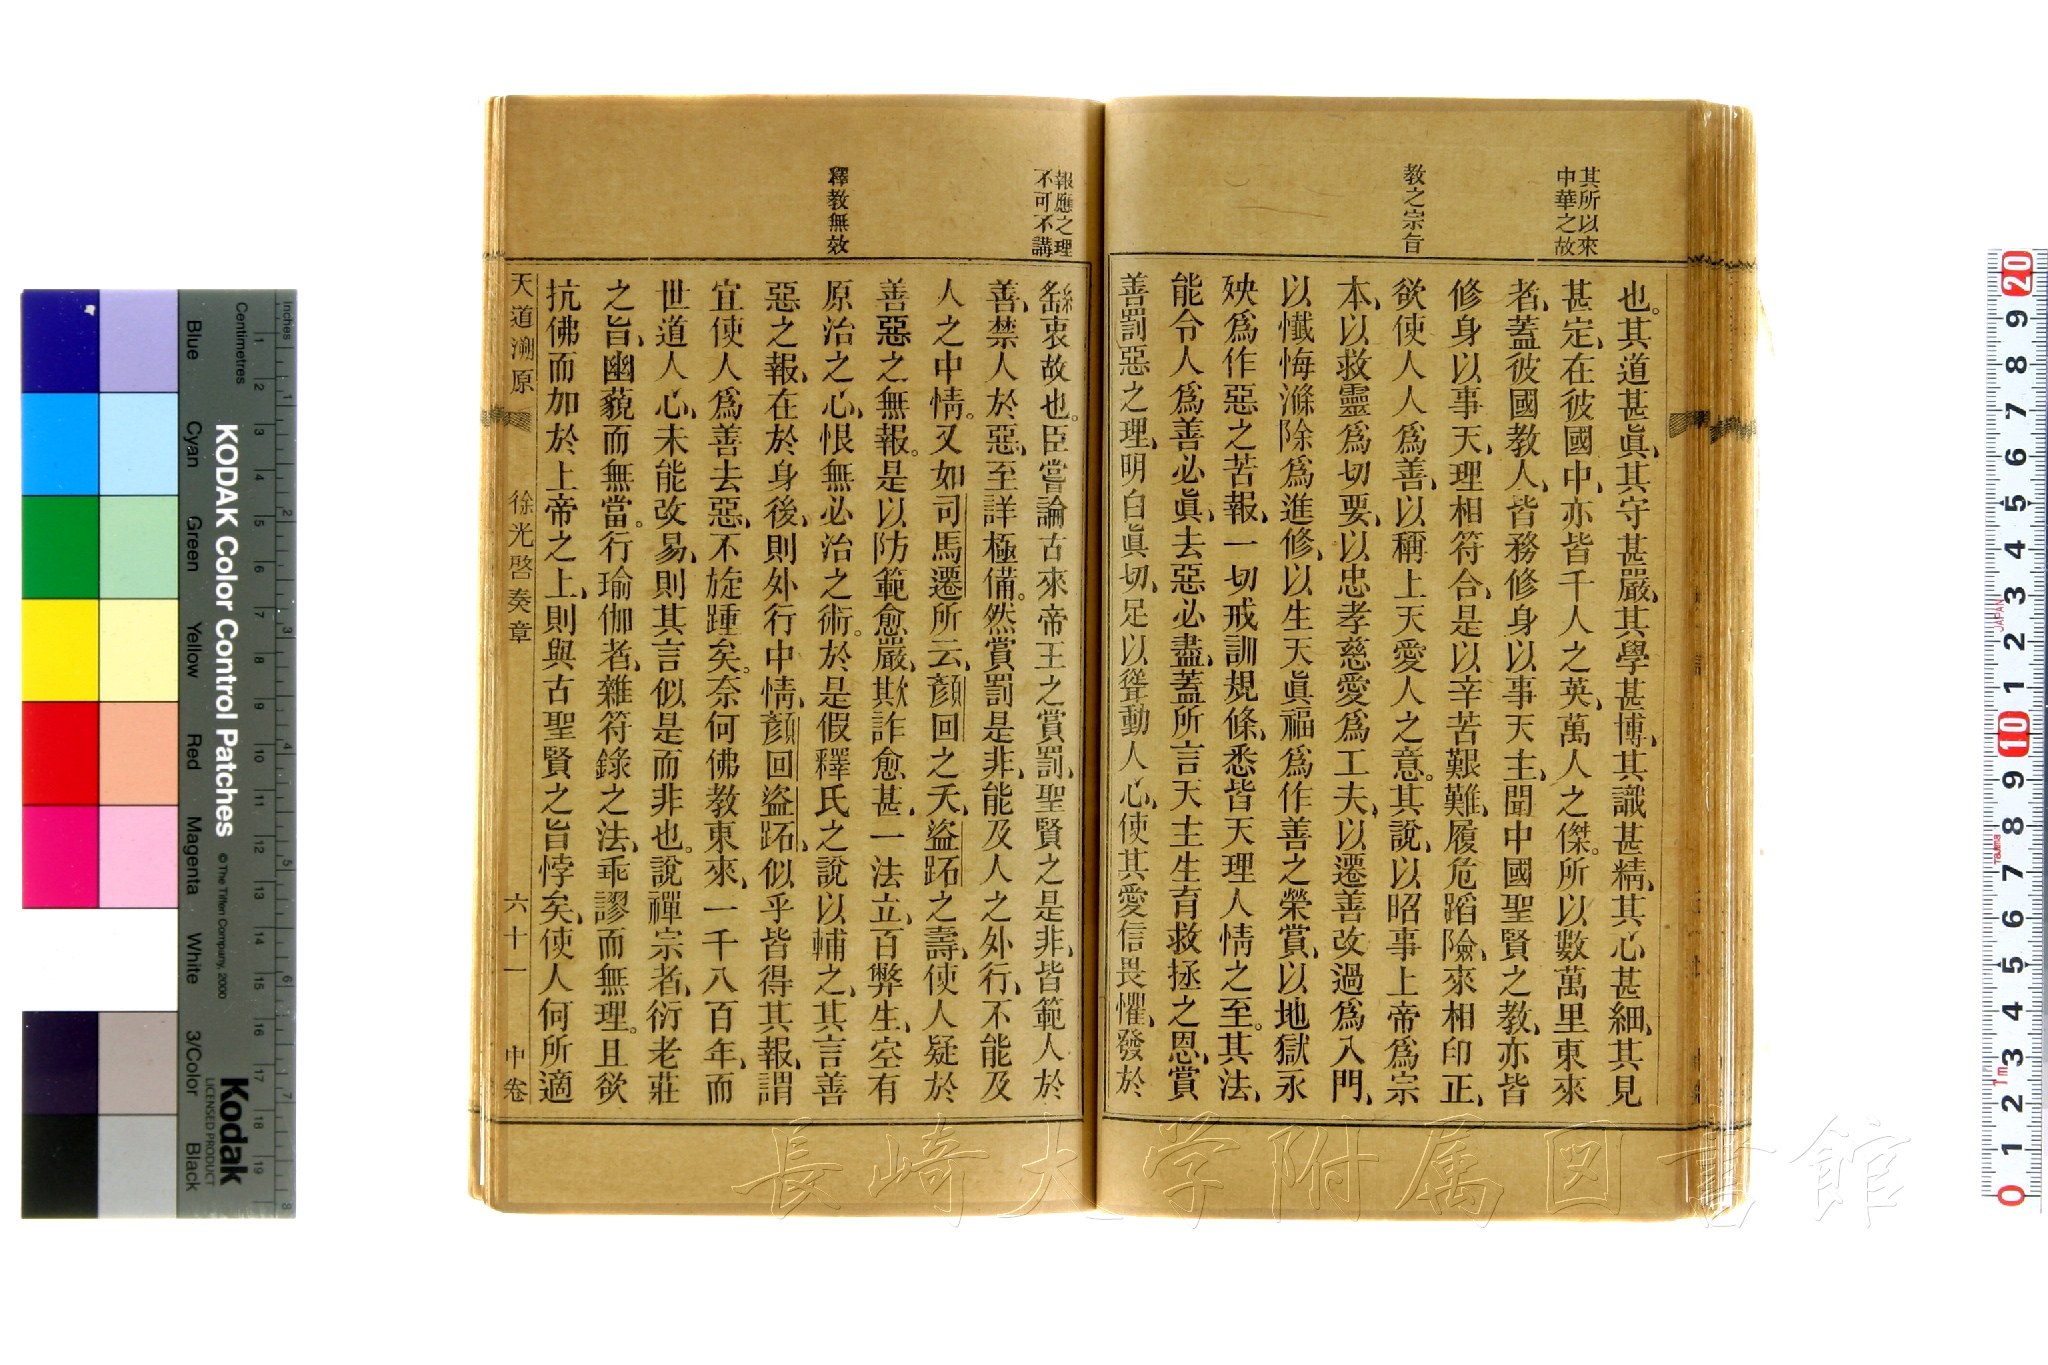 其所以來
中華之故
教之宗旨
也。其道甚眞、其守甚嚴、其學甚博、其識甚精、其心甚細、其見
甚定、在彼國中、亦皆千人之英、萬人之傑。所以數萬里東來
者、蓋彼國教人、皆務修身以事天主、聞中國聖賢之教、亦皆
修身以事天、理相符合、是以辛苦艱難、履危蹈險、來相印正、
欲使人人爲善、以稱上天愛人之意。其說、以昭事上帝爲宗
本、以救靈爲切要、以忠孝慈愛爲工夫、以遷善改過爲入門、
以懺悔滌除爲進修、以生天眞福爲作善之榮賞、以地獄永
殃爲作惡之苦報、一切戒訓規條、悉皆天理人情之至。其法、
能令人爲善必眞、去惡必盡、蓋所言天主生育救拯之恩、賞
善罰惡之理、明白眞切、足以聳動人心、使其愛信畏懼、發於
報應之理
不可不講
釋教無效
繇衷故也。臣嘗論古來帝王之賞罰、聖賢之是非、皆範人於
善、禁人於惡、至詳極備。然賞罰是非、能及人之外行、不能及
人之中情。又如司馬遷所云、顏回之夭、盜跖之壽、使人疑於
善惡之無報。是以防範愈嚴、欺詐愈甚、一法立、百弊生、空有
原治之心、恨無必治之術。於是假釋氏之說以輔之、其言善
惡之報、在於身後、則外行中情、顏回盜跖、似乎皆得其報、謂
宜使人爲善去惡、不旋踵矣。奈何佛教東來、一千八百年、而
世道人心、未能改易、則其言似是而非也。說禪宗者、衍老莊
之旨、幽藐而無當。行瑜伽者、雜符錄之法、乖謬而無理。且欲
抗佛而加於上帝之上、則與古聖賢之旨悖矣、使人何所適
天道溯原
徐光啓奏章
六十一
中卷
KODAK Color Control Patches
© The Tiffen Company, 2000
Kodak
LICENSED PRODUCT
Inches
Centimetres
Blue
Cyan
Green
Yellow
Red
Magenta
White
3/Color
Black
1 2 3 4 5 6 7 8 9 10 11 12 13 14 15 16 17 18 19
1 2 3 4 5 6 7 8
20 9 8 7 6 5 4 3 2 1 10 9 8 7 6 5 4 3 2 1 0
JAPAN
Tajima
1m
長崎大学附属図書館